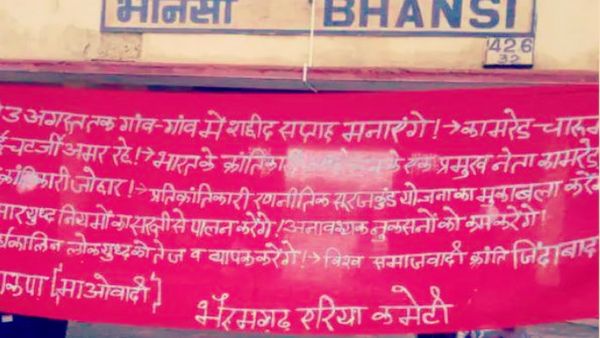 भांनसी BHANSI
426
32
3 अगस्त तक गांव-गांव में शहीद सप्ताह मनाएंगे!→ कामरेड-चारू
चटर्जी अमर रहे!→ भारत के क्रांतिकारी के एक प्रमुख नेता कामरेड
क्रांतिकारी जोहार!→ प्रतिक्रांतिकारी रणनीतिक सूरजकुंड योजना का मुकाबला करेंगे
मारयुध्द नियमों का सख्ती से पालन करेंगे! अनावश्यक नुकसनों को कम करेंगे!
कालिन लोकयुध्द को तेज व व्यापक करेंगे!→ विश्व समाजवादी क्रांति जिंदाबाद
भाकपा [माओवादी]
भैरमगढ़ एरिया कमेटी